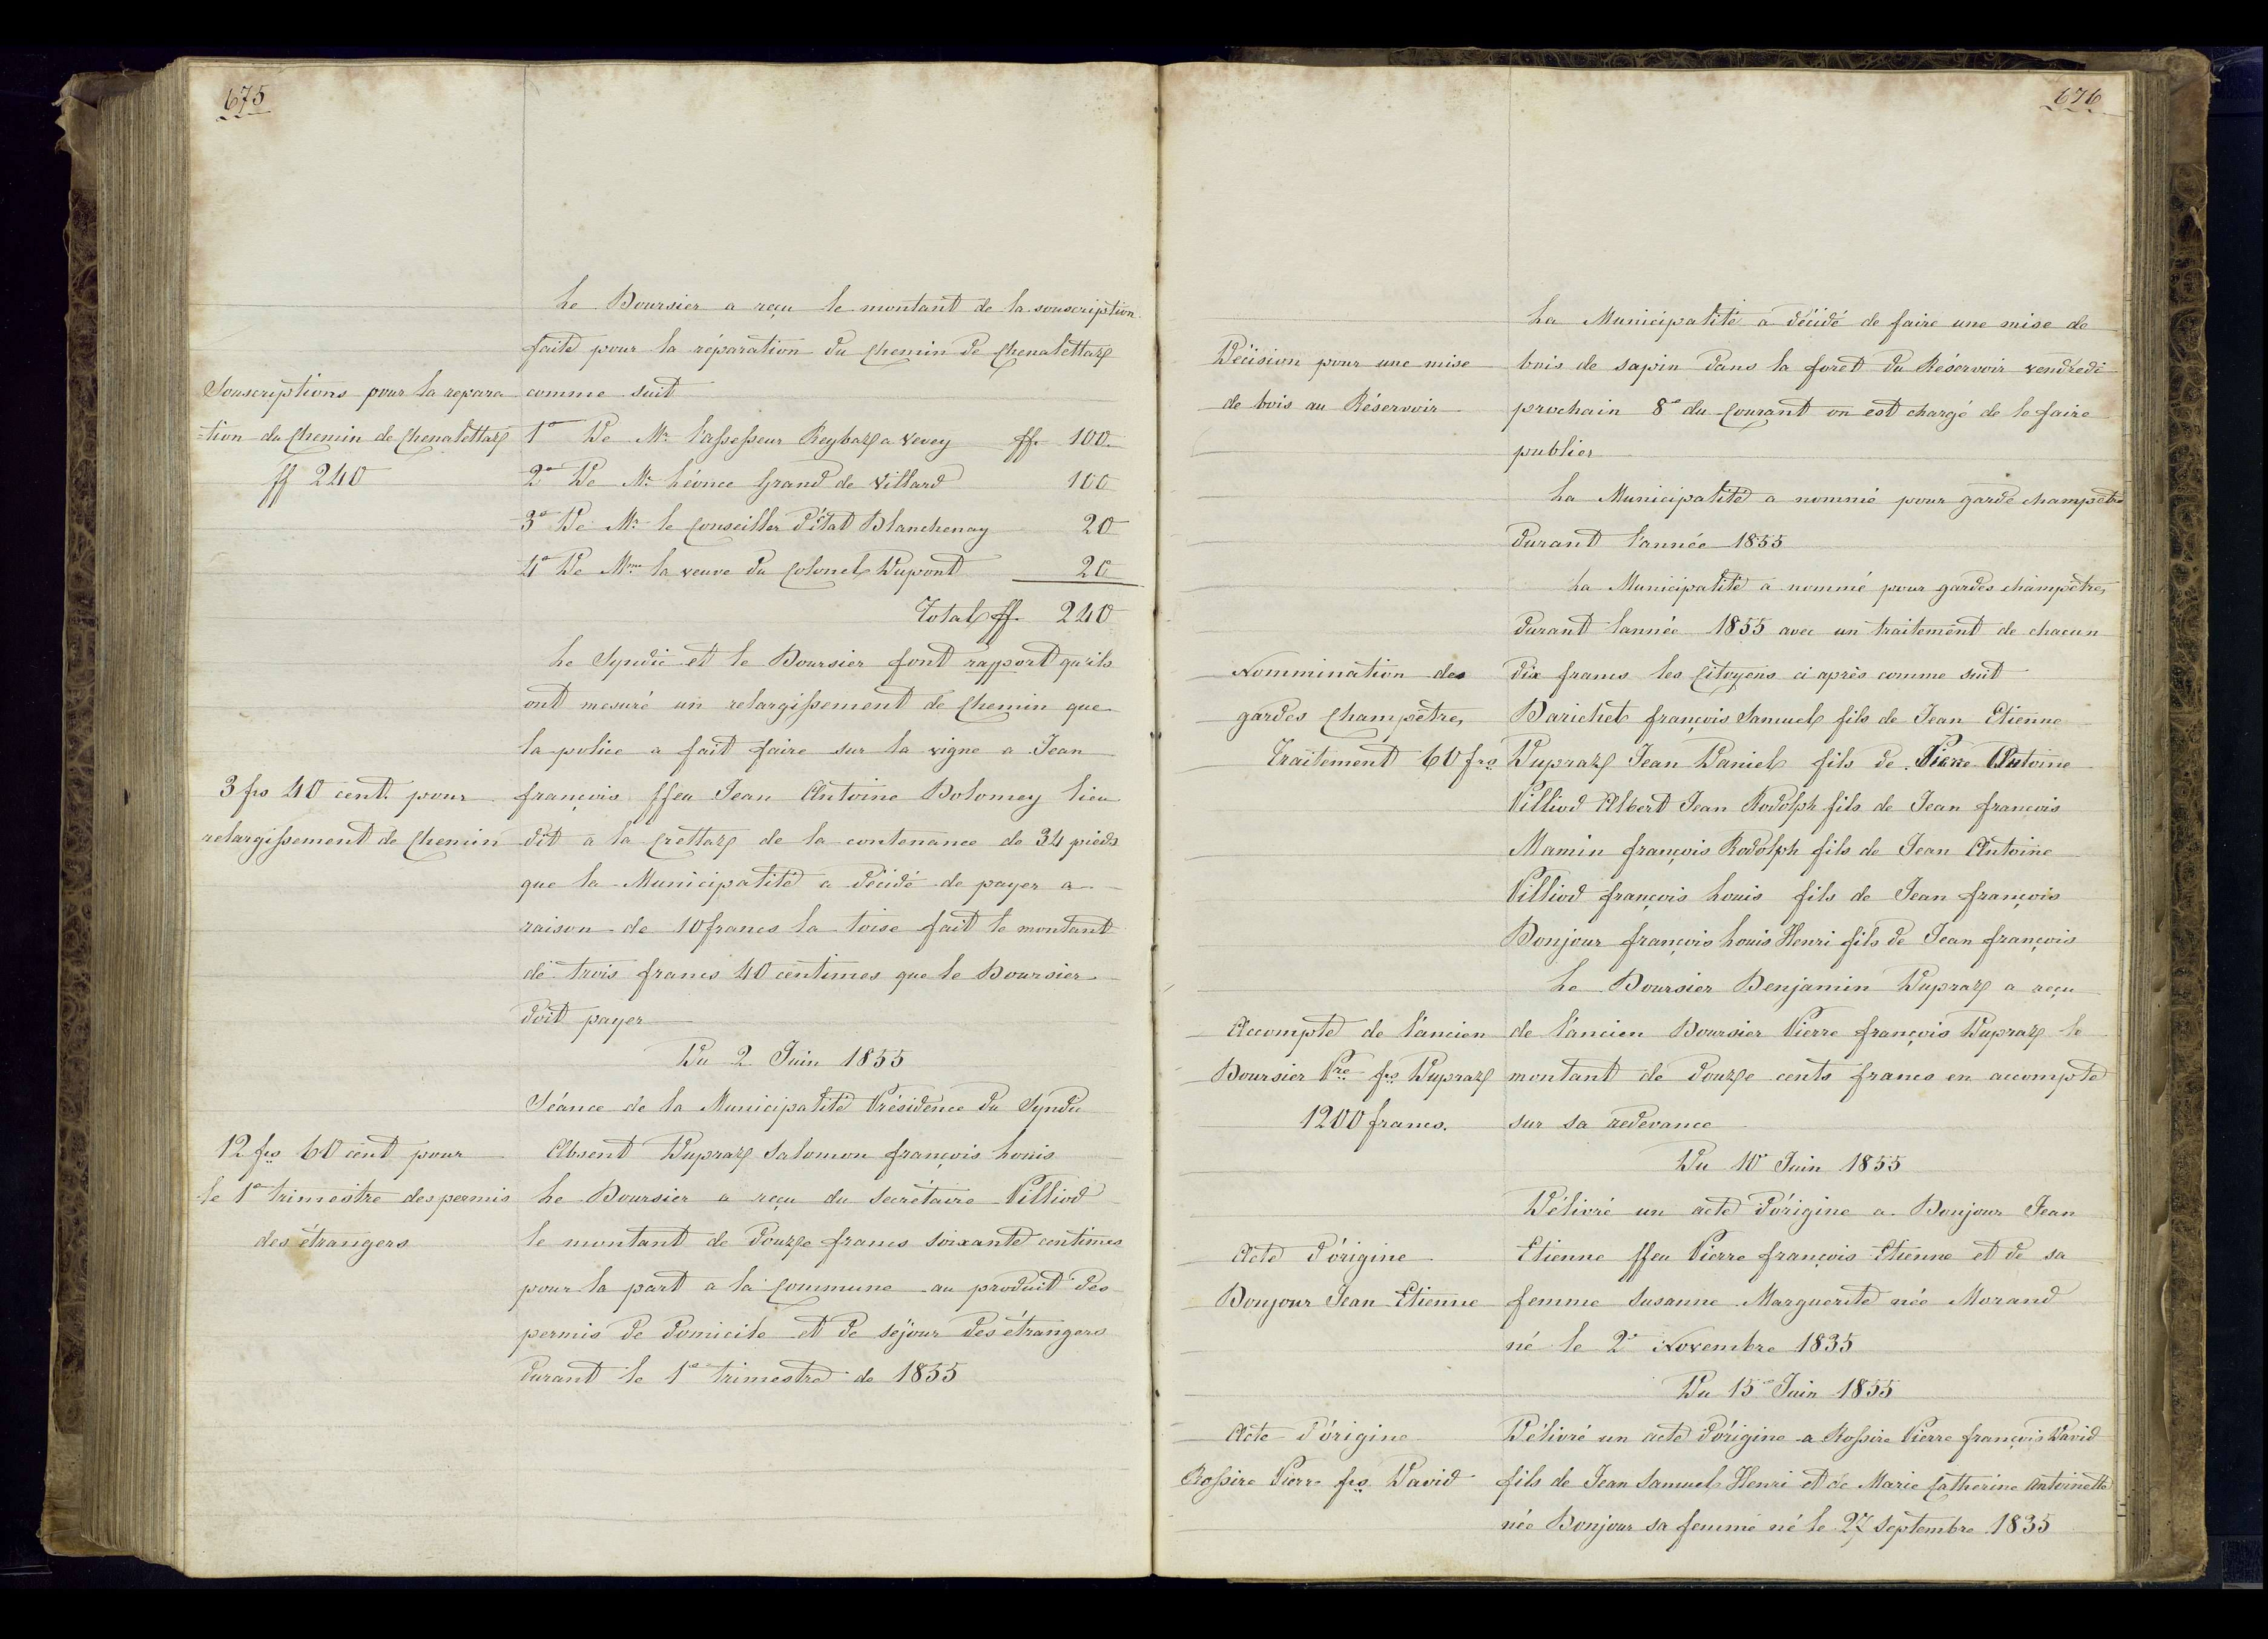 675
Le Boursier a reçu le montant de la souscription
faite pour la réparation du Chemin de Chenalettaz
Souscriptions pour la repara
comme suit
-tion du Chemin de Chenalettaz
1° De Mr l'assesseur Reybaz a vevey ff. 100
ff 240
2° De Mr Léonce Grand de Villard 100
3° De Mr le Conseiller d'état Blanchenay 20
4° De Mme la veuve du Colonel Dupont 20
Total ff. 240
Le Syndic et le Boursier font rapport qu'ils
ont mesuré un relargissement de Chemin que
la police a fait faire sur la vigne a Jean
3 frs 40 cent. pour
françois ffeu Jean Antoine Dolomey lieu
relargissement de Chemin
dit a la Crettaz de la contenance de 34 pieds
que la Municipalité a décidé de payer a
raison de 10 francs la toise fait le montant
de trois francs 40 centimes que le Boursier
doit payer
Du 2 Juin 1855
Séance de la Municipalité Présidence du Syndic
12 frs 60 cent pour
Absent Dupraz Salomon françois Louis
le 1er trimestre des permis
Le Boursier a reçu du Secrétaire Villiod
des étrangers
le montant de douze francs soixante centimes
pour la part a la Commune au produit des
permis de domicile et de séjour des étrangers
durant le 1er trimestre de 1855
676
La Municipalité a décidé de faire une mise de
Décision pour une mise
bois de sapin dans la foret du Réservoir vendredi
de bois au Réservoir
prochain 8e du Courant on est chargé de le faire
publier
La Municipalité a nommé pour garde champètre
durant l'année 1855
La Municipalité a nommé pour gardes champètres
durant lannée 1855 avec un traitement de chacun
Nommination des
dix francs les Citoyens ci après comme suit
gardes Champètres
Barichet françois Samuel fils de Jean Etienne
Traitement 60 frs
Dupraz Jean Daniel fils de Pierre Antoine
Villiod Albert Jean Rodolph fils de Jean françois
Mamin françois Rodolph fils de Jean Antoine
Villiod françois Louis fils de Jean françois
Bonjour françois Louis Henri fils de Jean françois
Le Boursier Benjamin Dupraz a reçu
Accompte de l'ancien
de l'ancien Boursier Pierre françois Dupraz le
Boursier Pre frs Dupraz
montant de douze cents francs en accompte
1200 francs.
sur sa redevance
Du 10 Juin 1855
Délivré un acte d'origine a Bonjour Jean
Acte d'origine
Etienne ffeu Pierre françois Etienne et de sa
Bonjour Jean Etienne
femme Susanne Marguerite née Morand
né le 2e Novembre 1835
Du 15e Juin 1855
Acte d'origine
Délivré un acte d'origine a Rossire Pierre françois David
Rossire Pierre frs David
fils de Jean Samuel Henri et de Marie Catherine Antoinette
née Bonjour sa femme né le 27 Septembre 1835